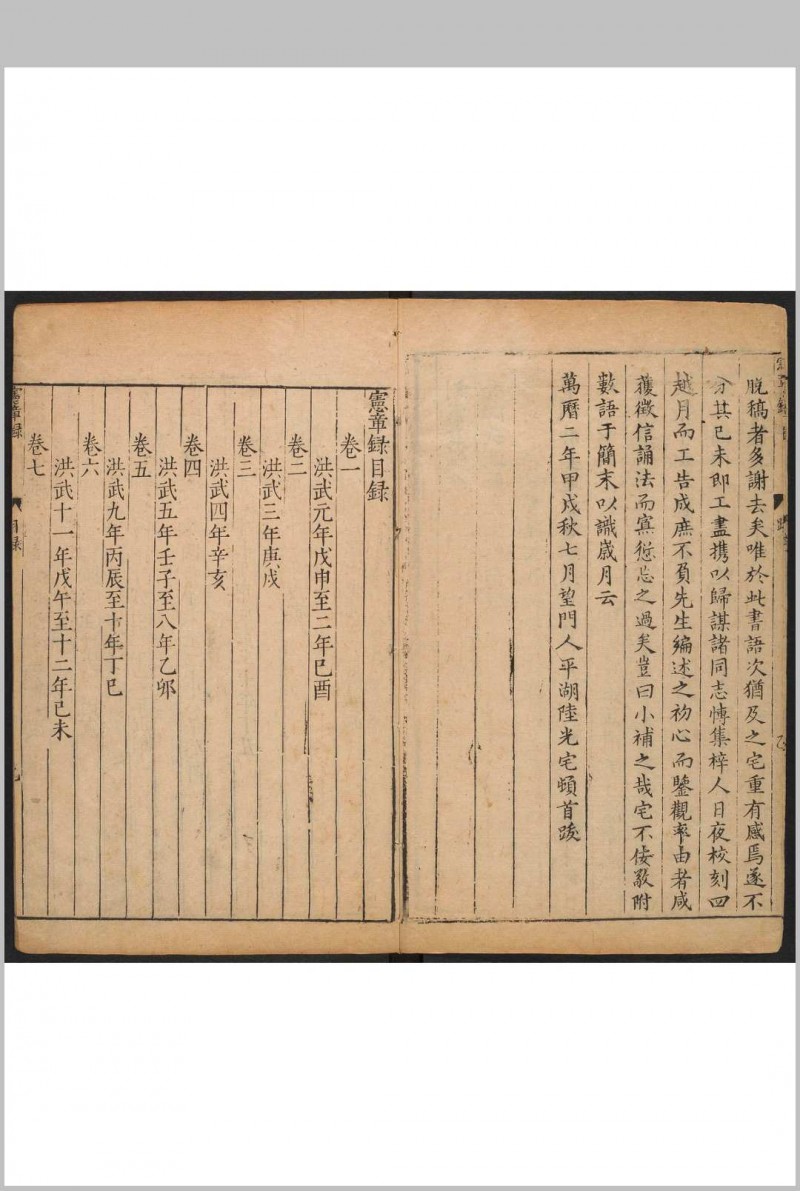 脫稿者多謝去矣唯於此書語次猶及之宅重有感焉遂不
分其已未即工盡携以歸謀諸同志慱集梓人日夜校刻四
越月而工告成庶不負先生編述之初心而鑒觀率由者咸
獲徵信誦法而寡愆忘之過矣豈曰小補之哉宅不佞敬附
數語于簡末以識歲月云
萬曆二年甲戌秋七月望門人平湖陸光宅頓首跋
憲章錄目錄
卷一
洪武元年戊申至二年己酉
卷二
洪武三年庚戌
卷三
洪武四年辛亥
卷四
洪武五年壬子至八年乙卯
卷五
洪武九年丙辰至十年丁巳
卷六
洪武十一年戊午至十二年己未
卷七
憲章錄
目錄